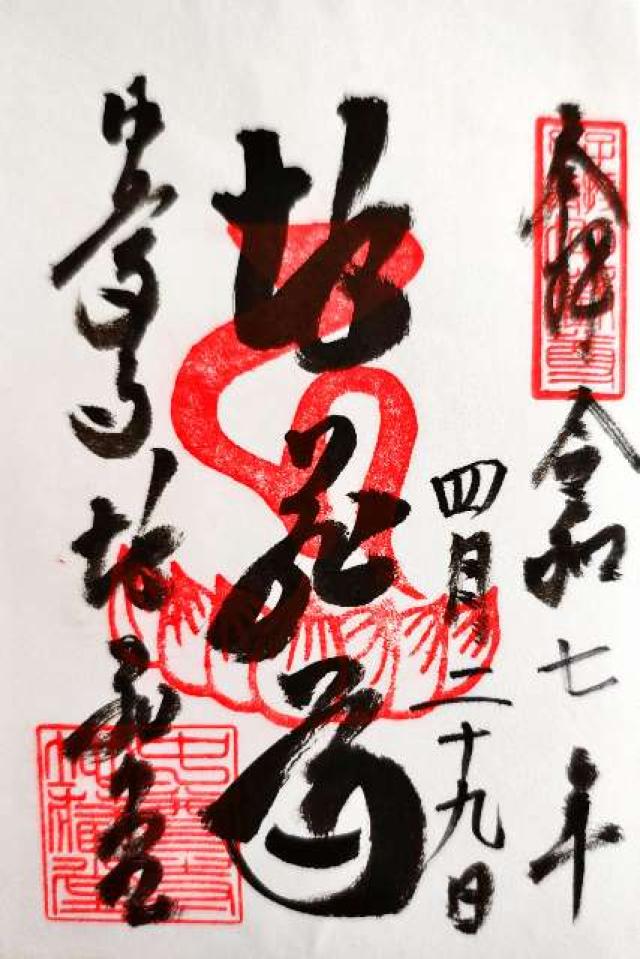 奉拝
令和七年
四月二十九日
地蔵尊
中尊寺
地蔵堂